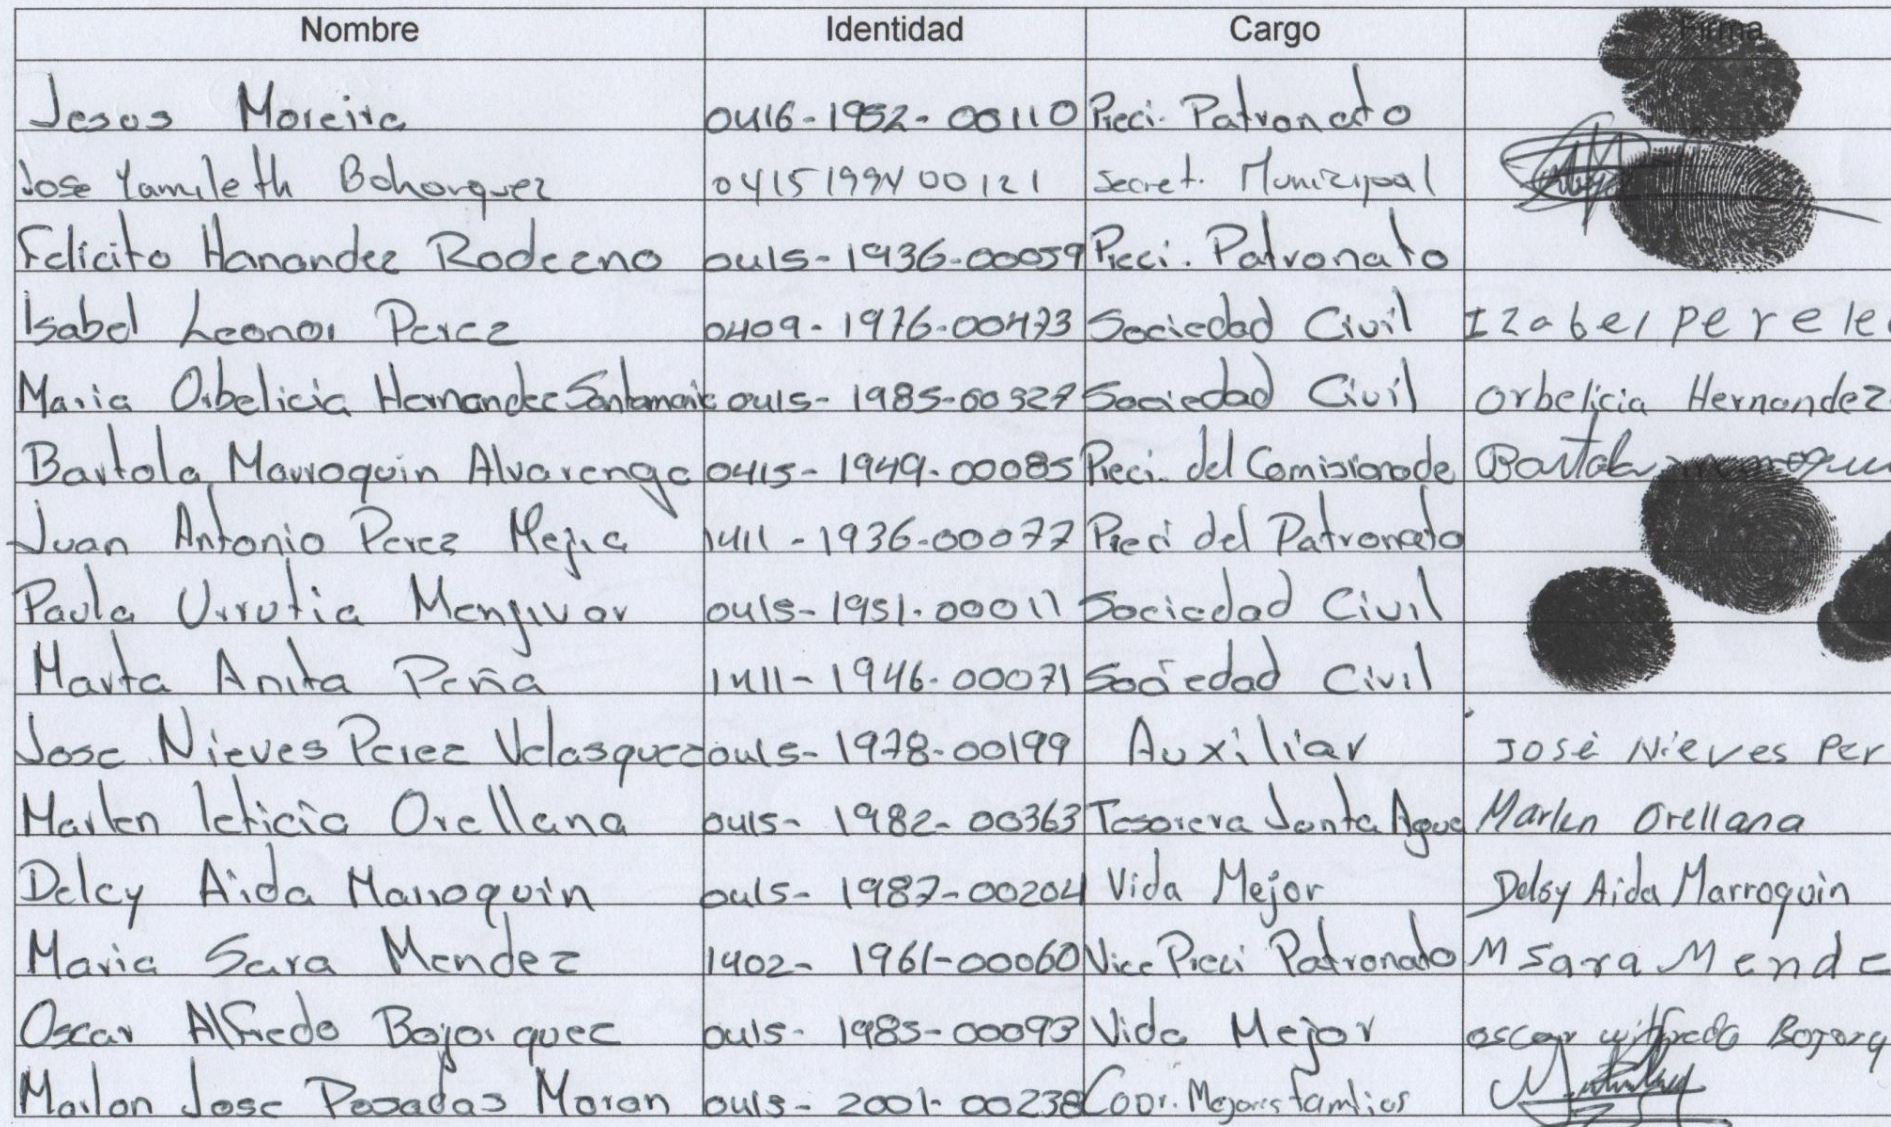 Nombre Identidad Cargo Firma
Jesus Moreira 0416-1952-00110 Preci. Patronato
Jose Yamileth Bohorquez 0415 1994 00121 Secret. Municipal
Felicito Hanandez Rodezno 0415-1936-00059 Preci. Patronato
Isabel Leonor Perez 0409-1976-00473 Sociedad Civil Izabel pere le
Maria Orbelicia Hernandez Santamaria 0415-1985-00327 Sociedad Civil Orbelicia Hernandez
Bartola Marroquin Alvarenga 0415-1949-00085 Preci. del Comisionado Bartola
Juan Antonio Perez Mejia 1411-1936-00077 Preci del Patronato
Paula Urrutia Menjivar 0415-1951-00011 Sociedad Civil
Marta Anita Peña 1411-1946-00071 Sociedad Civil
Jose Nieves Perez Velasquez 0415-1978-00199 Auxiliar José Nieves Per
Marlen leticia Orellana 0415-1982-00363 Tesorera Junta Agua Marlen Orellana
Delcy Aida Marroquin 0415-1987-00204 Vida Mejor Delsy Aida Marroquin
Maria Sara Mendez 1402-1961-00060 Vice Preci Patronato M Sara Mende
Oscar Alfredo Bojorquez 0415-1985-00093 Vida Mejor oscar wilfredo Bojorq
Marlon Jose Posadas Moran 0415-2001-00238 Coor. Mejores familias